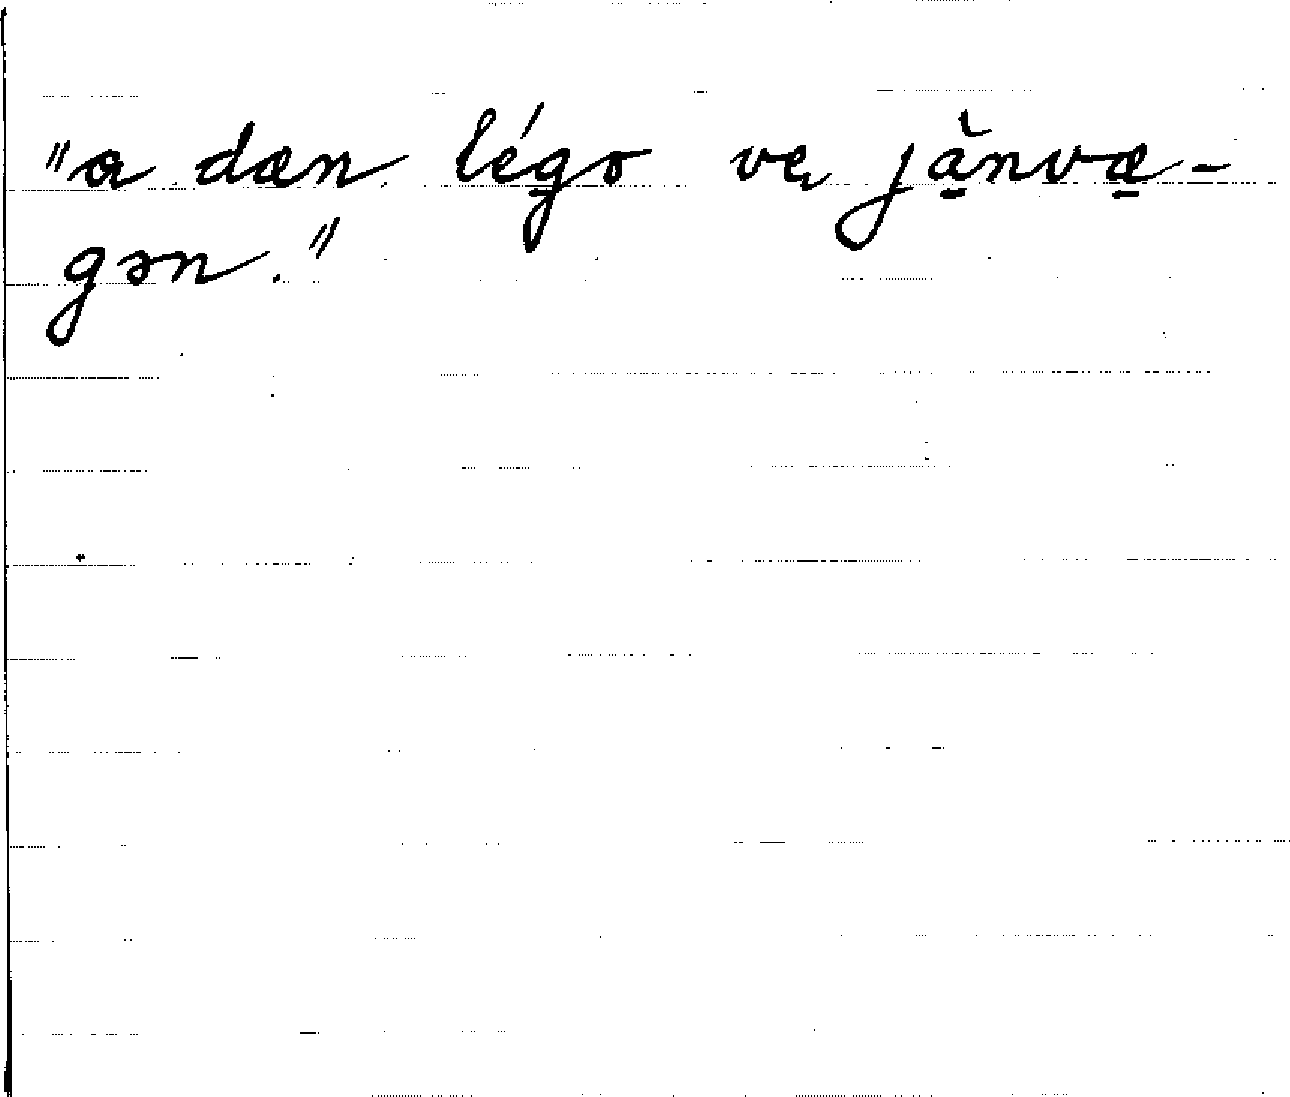 "a dæn légo ve jă̱nvæ̱-
gən."